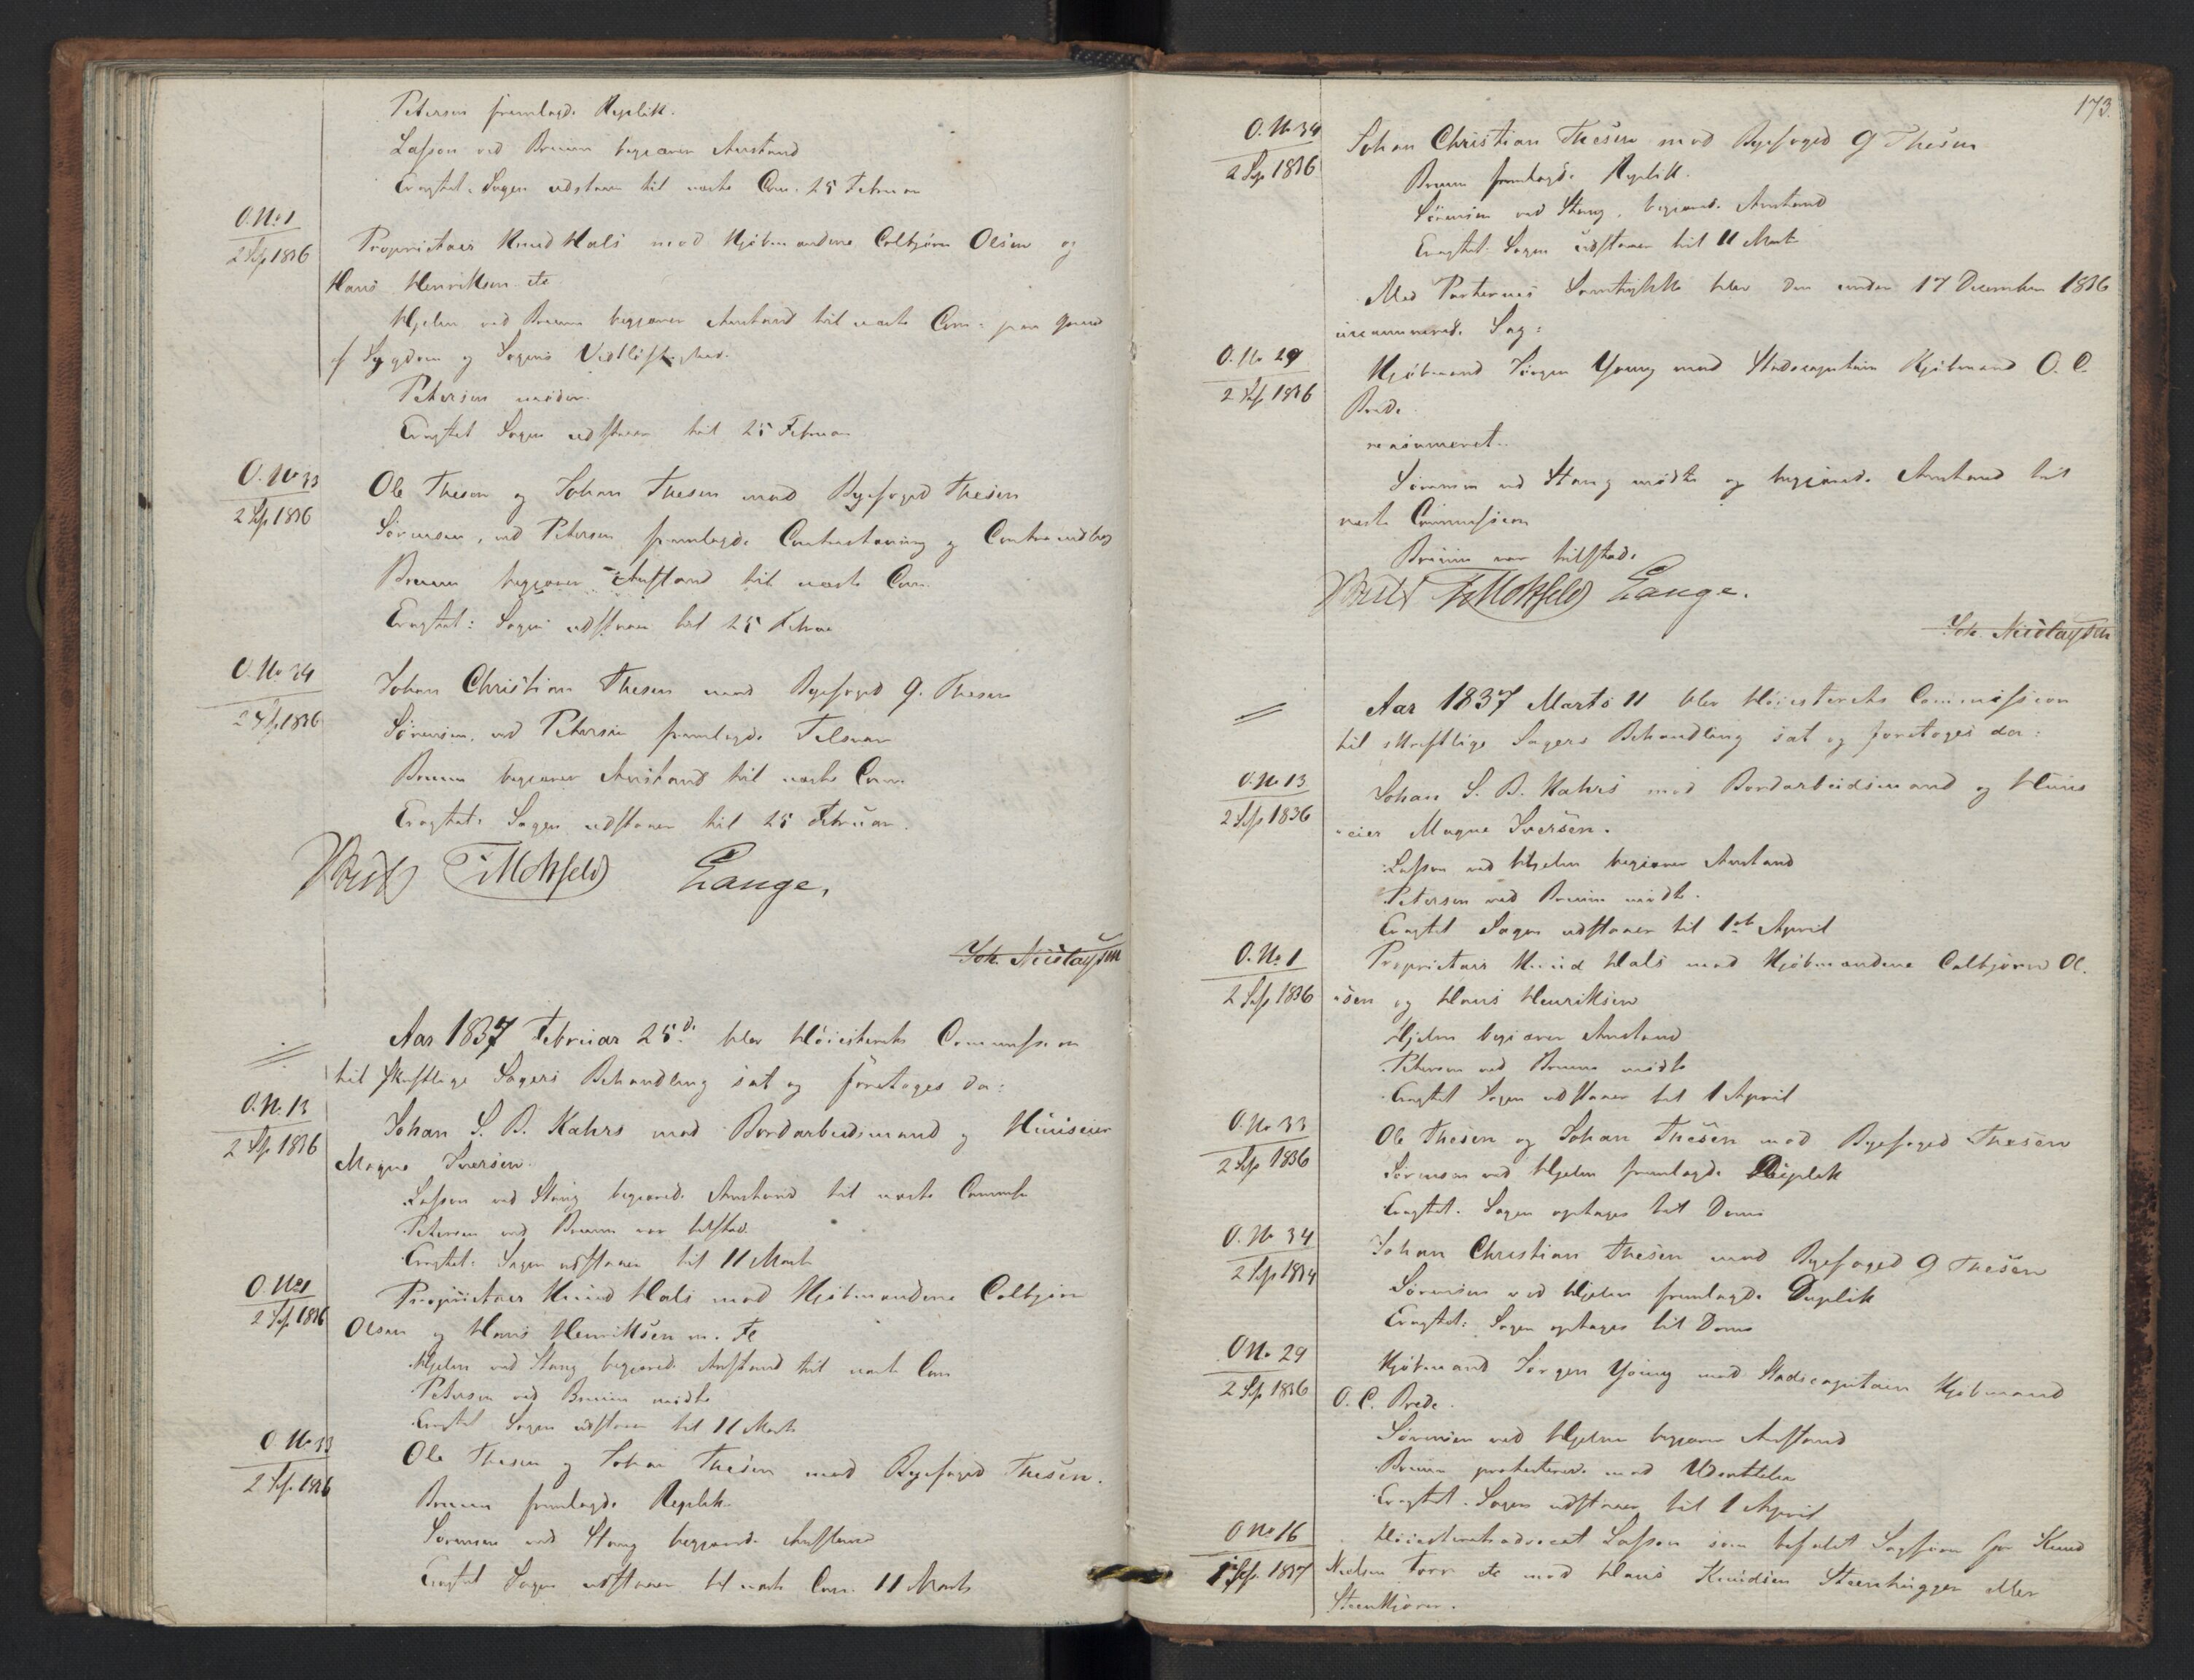 Petersen fremlagde Replik.
Lasson ved Bruun begjærer Anstand
Eragtet: Sagen udstaaer til næste Com. 25 Februar
O. No 1
2 Sess 1836
Proprietair Knud Hals mod Kjøbmændene Colbjørn Olsen og
Hans Henriksen etc
Hjelm ved Bruun begjærer Anstand til næste Com: paa Grund
af Sygdom og Sagens Vidtløftighed.
Petersen møder.
Eragtet Sagen udstaaer til 25 Februar
O. No 33
2 Sess 1836
Ole Thesen og Johan Thesen mod Byefoged Thesen
Sörensen, ved Petersen fremlagde Contrastævning og Contraindlæg
Bruun begjærer Anstand til næste Com.
Eragtet: Sagen udstaaer til 25 Februar
O. No 34
2 Sess 1836
Johan Christian Thesen mod Byefoged G. Thesen
Sörensen, ved Petersen fremlagde Tilsvar
Bruun begjærer Anstand til næste Com.
Eragtet: Sagen udstaaer til 25 Februar.
Motzfeldt Lange.
Joh. Nicolaysen
Aar 1837 Februar 25d. blev Höiesterets Commission
til skriftlige Sagers Behandling sat og foretoges da:
O. N. 13
2 Sess 1836
Johan S. B. Kahrs mod Bordarbeidsmand og Huuseier
Magne Iversen.
Lasson ved Stang begjærede Anstand til næste Commiss
Petersen ved Bruun var tilstæde
Eragtet: Sagen udstaaer til 11 Marts
O. No 1
2 Sess 1836
Proprietair Knud Hals mod Kjøbmændene Colbjørn
Olsen og Hans Henriksen m. Fl
Hjelm ved Stang begjærede Anstand til næste Com
Petersen ved Bruun mødte
Eragtet Sagen udstaaer til 11 Marts
O No 33
2 Sess 1836
Ole Thesen og Johan Thesen mod Byefoged Thesen.
Bruun fremlagde Replik
Sörensen ved Stang begjærede Anstand
Eragtet Sagen udstaaer til næste Com. 11 Marts
173.
O. No 34
2 Sess 1836
Johan Christian Thesen mod Byefoged G Thesen
Bruun fremlagde Replik.
Sörensen ved Stang, begjærede Anstand
Eragtet: Sagen udstaaer til 11 Marts
Med Parternes Samtykke blev den under 17 December 1836
incaminerede Sag:
O. No 29
2 Sess 1836
Kjøbmand Jörgen Young mod Stadscapitain Kjøbmand O. C.
Brede
reasumeret.
Sörensen ved Stang mødte og begjærede Anstand til
næste Commission
Bruun var tilstæde
Motzfeldt Lange.
Joh. Nicolaysen
Aar 1837 Marts 11 blev Höiesterets Commission
til skriftlige Sagers Behandling sat og foretoges da:
O. No 13
2 Sess 1836
Johan S. B. Kahrs mod Bordarbeidsmand og Huus
eier Magne Iversen.
Lasson ved Hjelm begjærer Anstand
Petersen ved Bruun mødte.
Eragtet Sagen udstaaer til 1ste April
O. No 1
2 Sess 1836
Proprietair Knud Hals mod Kjøbmændene Colbjørn Ol-
sen og Hans Henriksen
Hjelm begjærer Anstand
Petersen ved Bruun mødte
Eragtet Sagen udstaaer til 1 April
O. No 33
2 Sess 1836
Ole Thesen og Johan Thesen mod Byefoged Thesen
Sörensen ved Hjelm fremlagde Duplik
Eragtet. Sagen optages til Doms
O. No 34
2 Sess 1834
Johan Christian Thesen mod Byefoged G Thesen
Sörensen ved Hjelm fremlagde Duplik
Eragtet: Sagen optages til Doms
O No. 29
2 Sess 1836
Kjøbmand Jörgen Young mod Stadscapitain Kjøbmand
O. C. Brede.
Sörensen ved Hjelm begjærer Anstand
Bruun protesterede mod Udsættelse
Eragtet. Sagen udstaaer til 1 April
O No 16
1 Sess. 1837
Höiesteretsadvocat Lasson som befalet Sagfører for Knud
Nielsen Torr etc mod Hans Knudsen Steenhugger eller
Steenkjører.